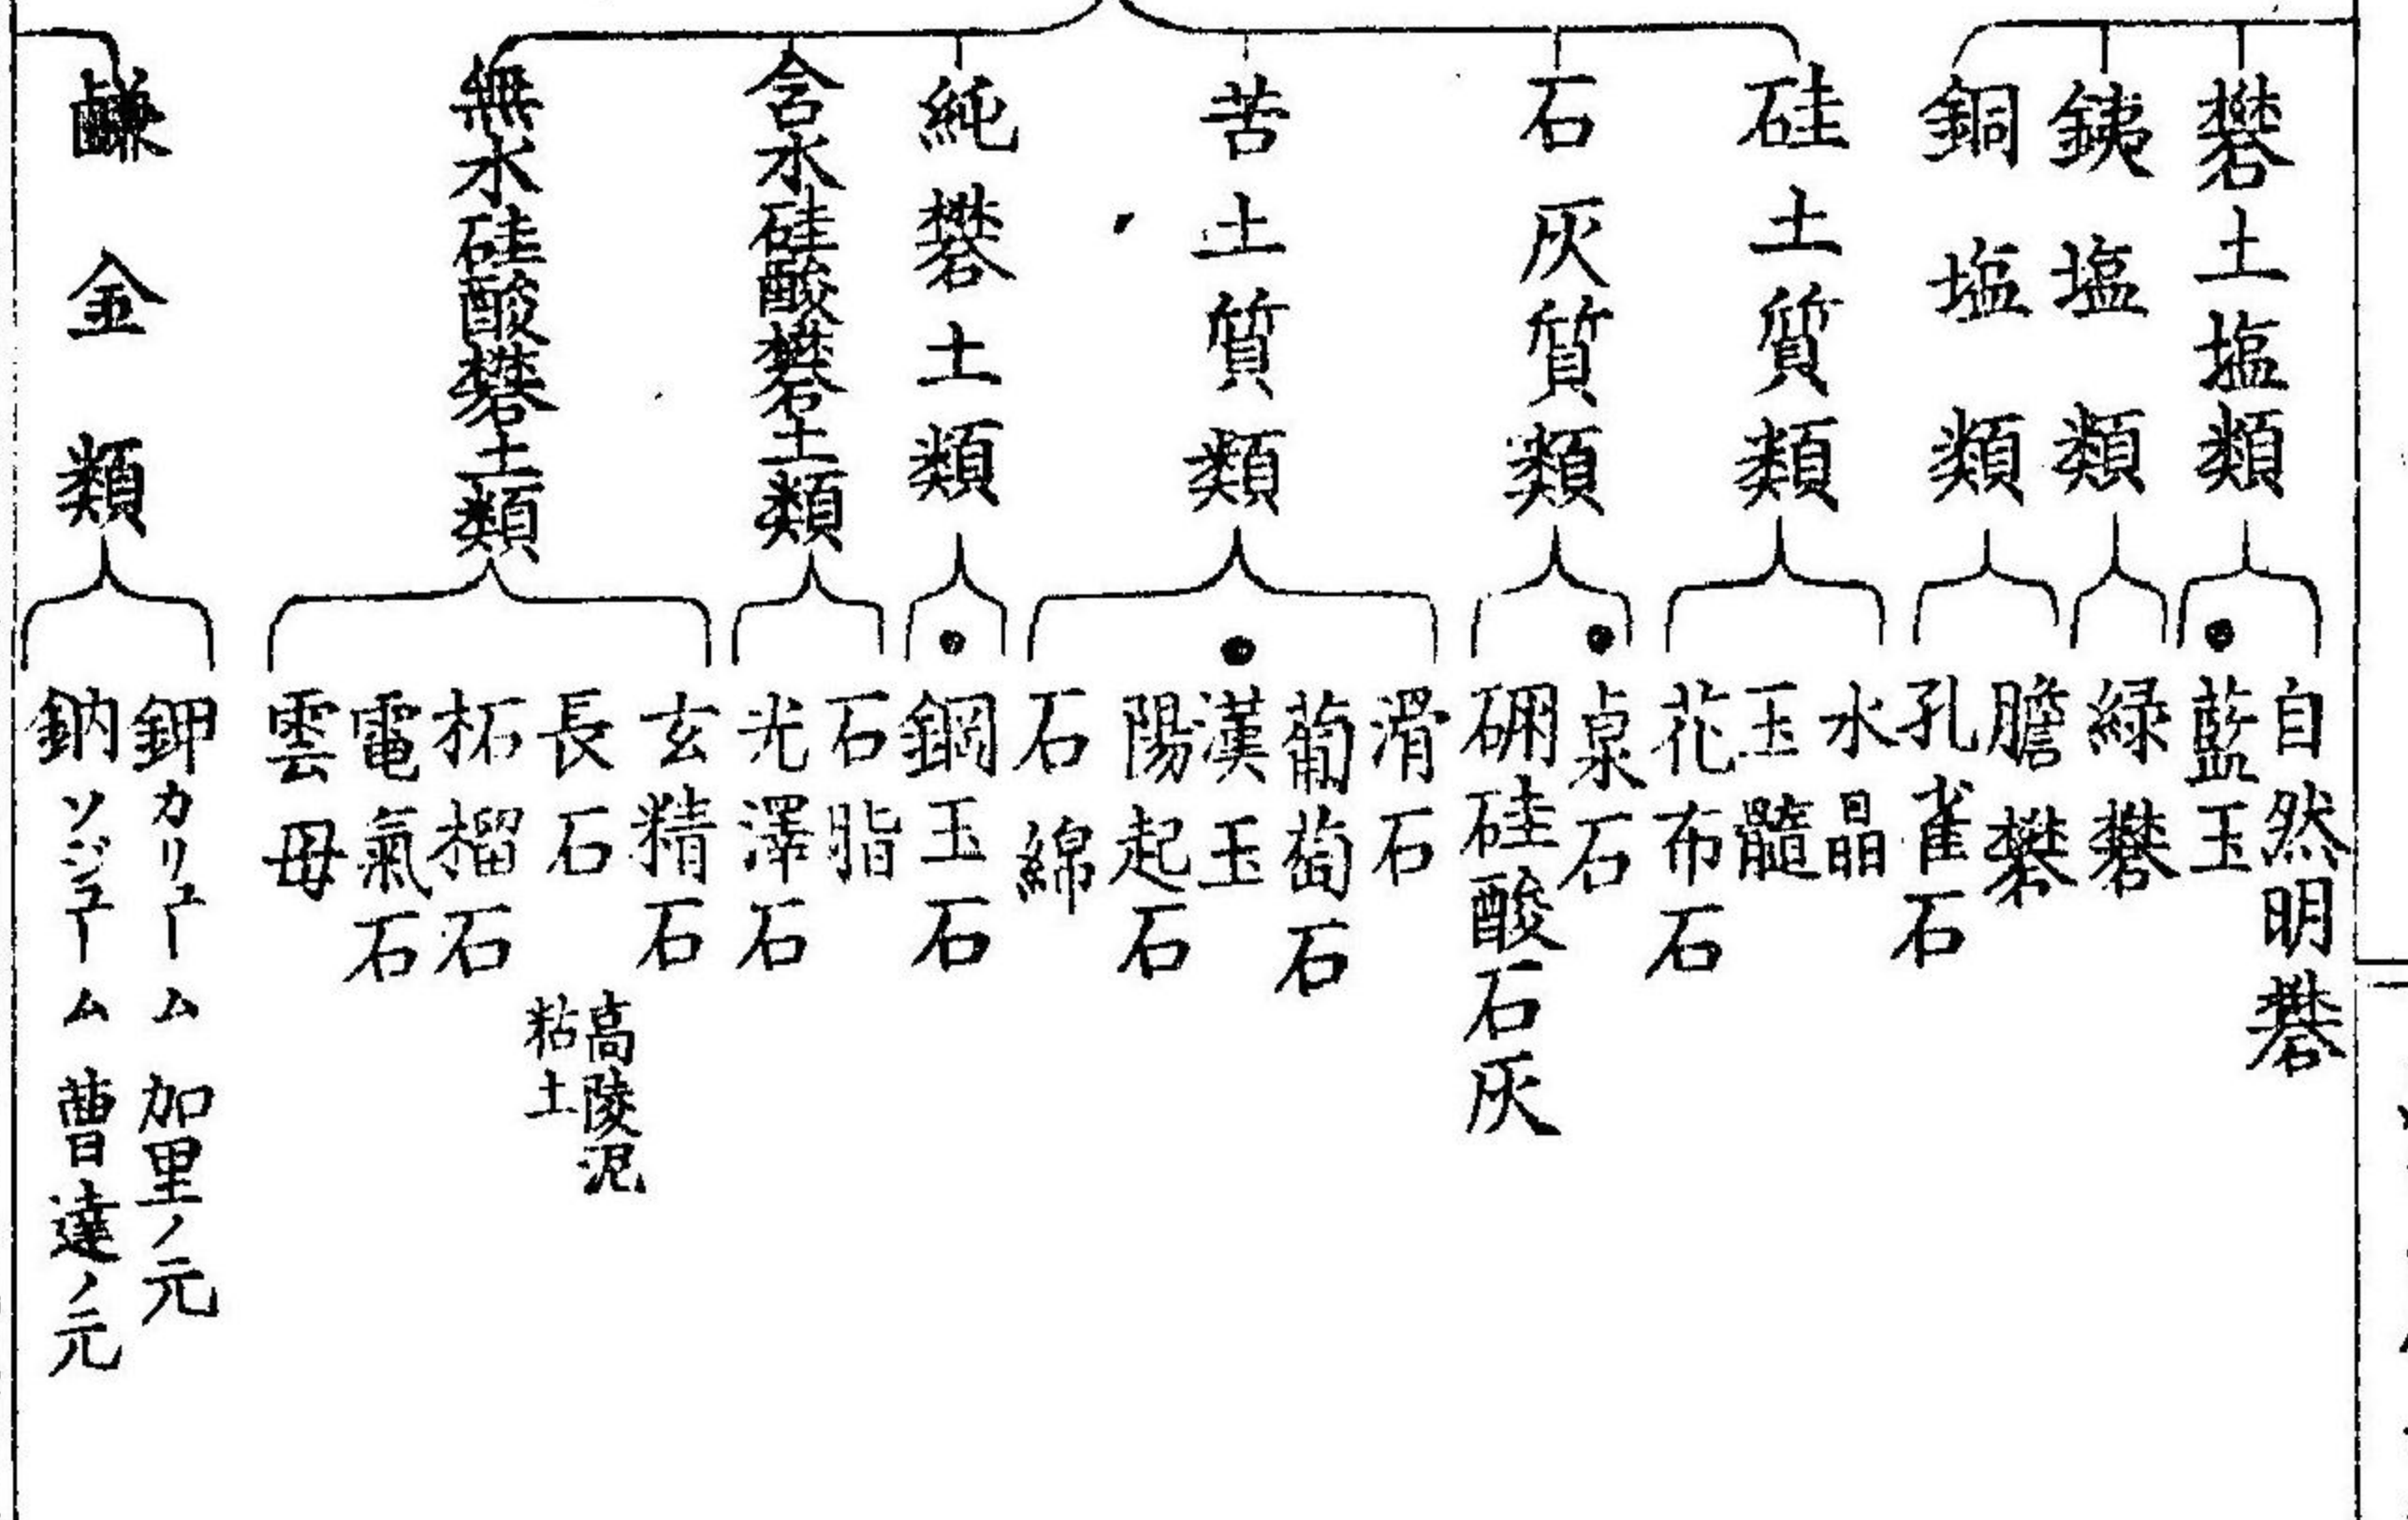 礬土塩類
自然明礬
藍玉
銕塩類
緑礬
銅塩類
膽礬
孔雀石
硅土質類
水晶
玉髓
花布石
石灰質類
桌石
硼硅酸石灰
苦土質類
滑石
葡萄石
漢玉
陽起石
石綿
純礬土類
鋼玉石
含水硅酸礬土類
石脂
光澤石
無水硅酸礬土類
玄精石
長石
高陵泥
粘土
柘榴石
電氣石
雲母
鹻金類
鉀カリユーム 加里ノ元
鈉ソジユーム 曹達ノ元